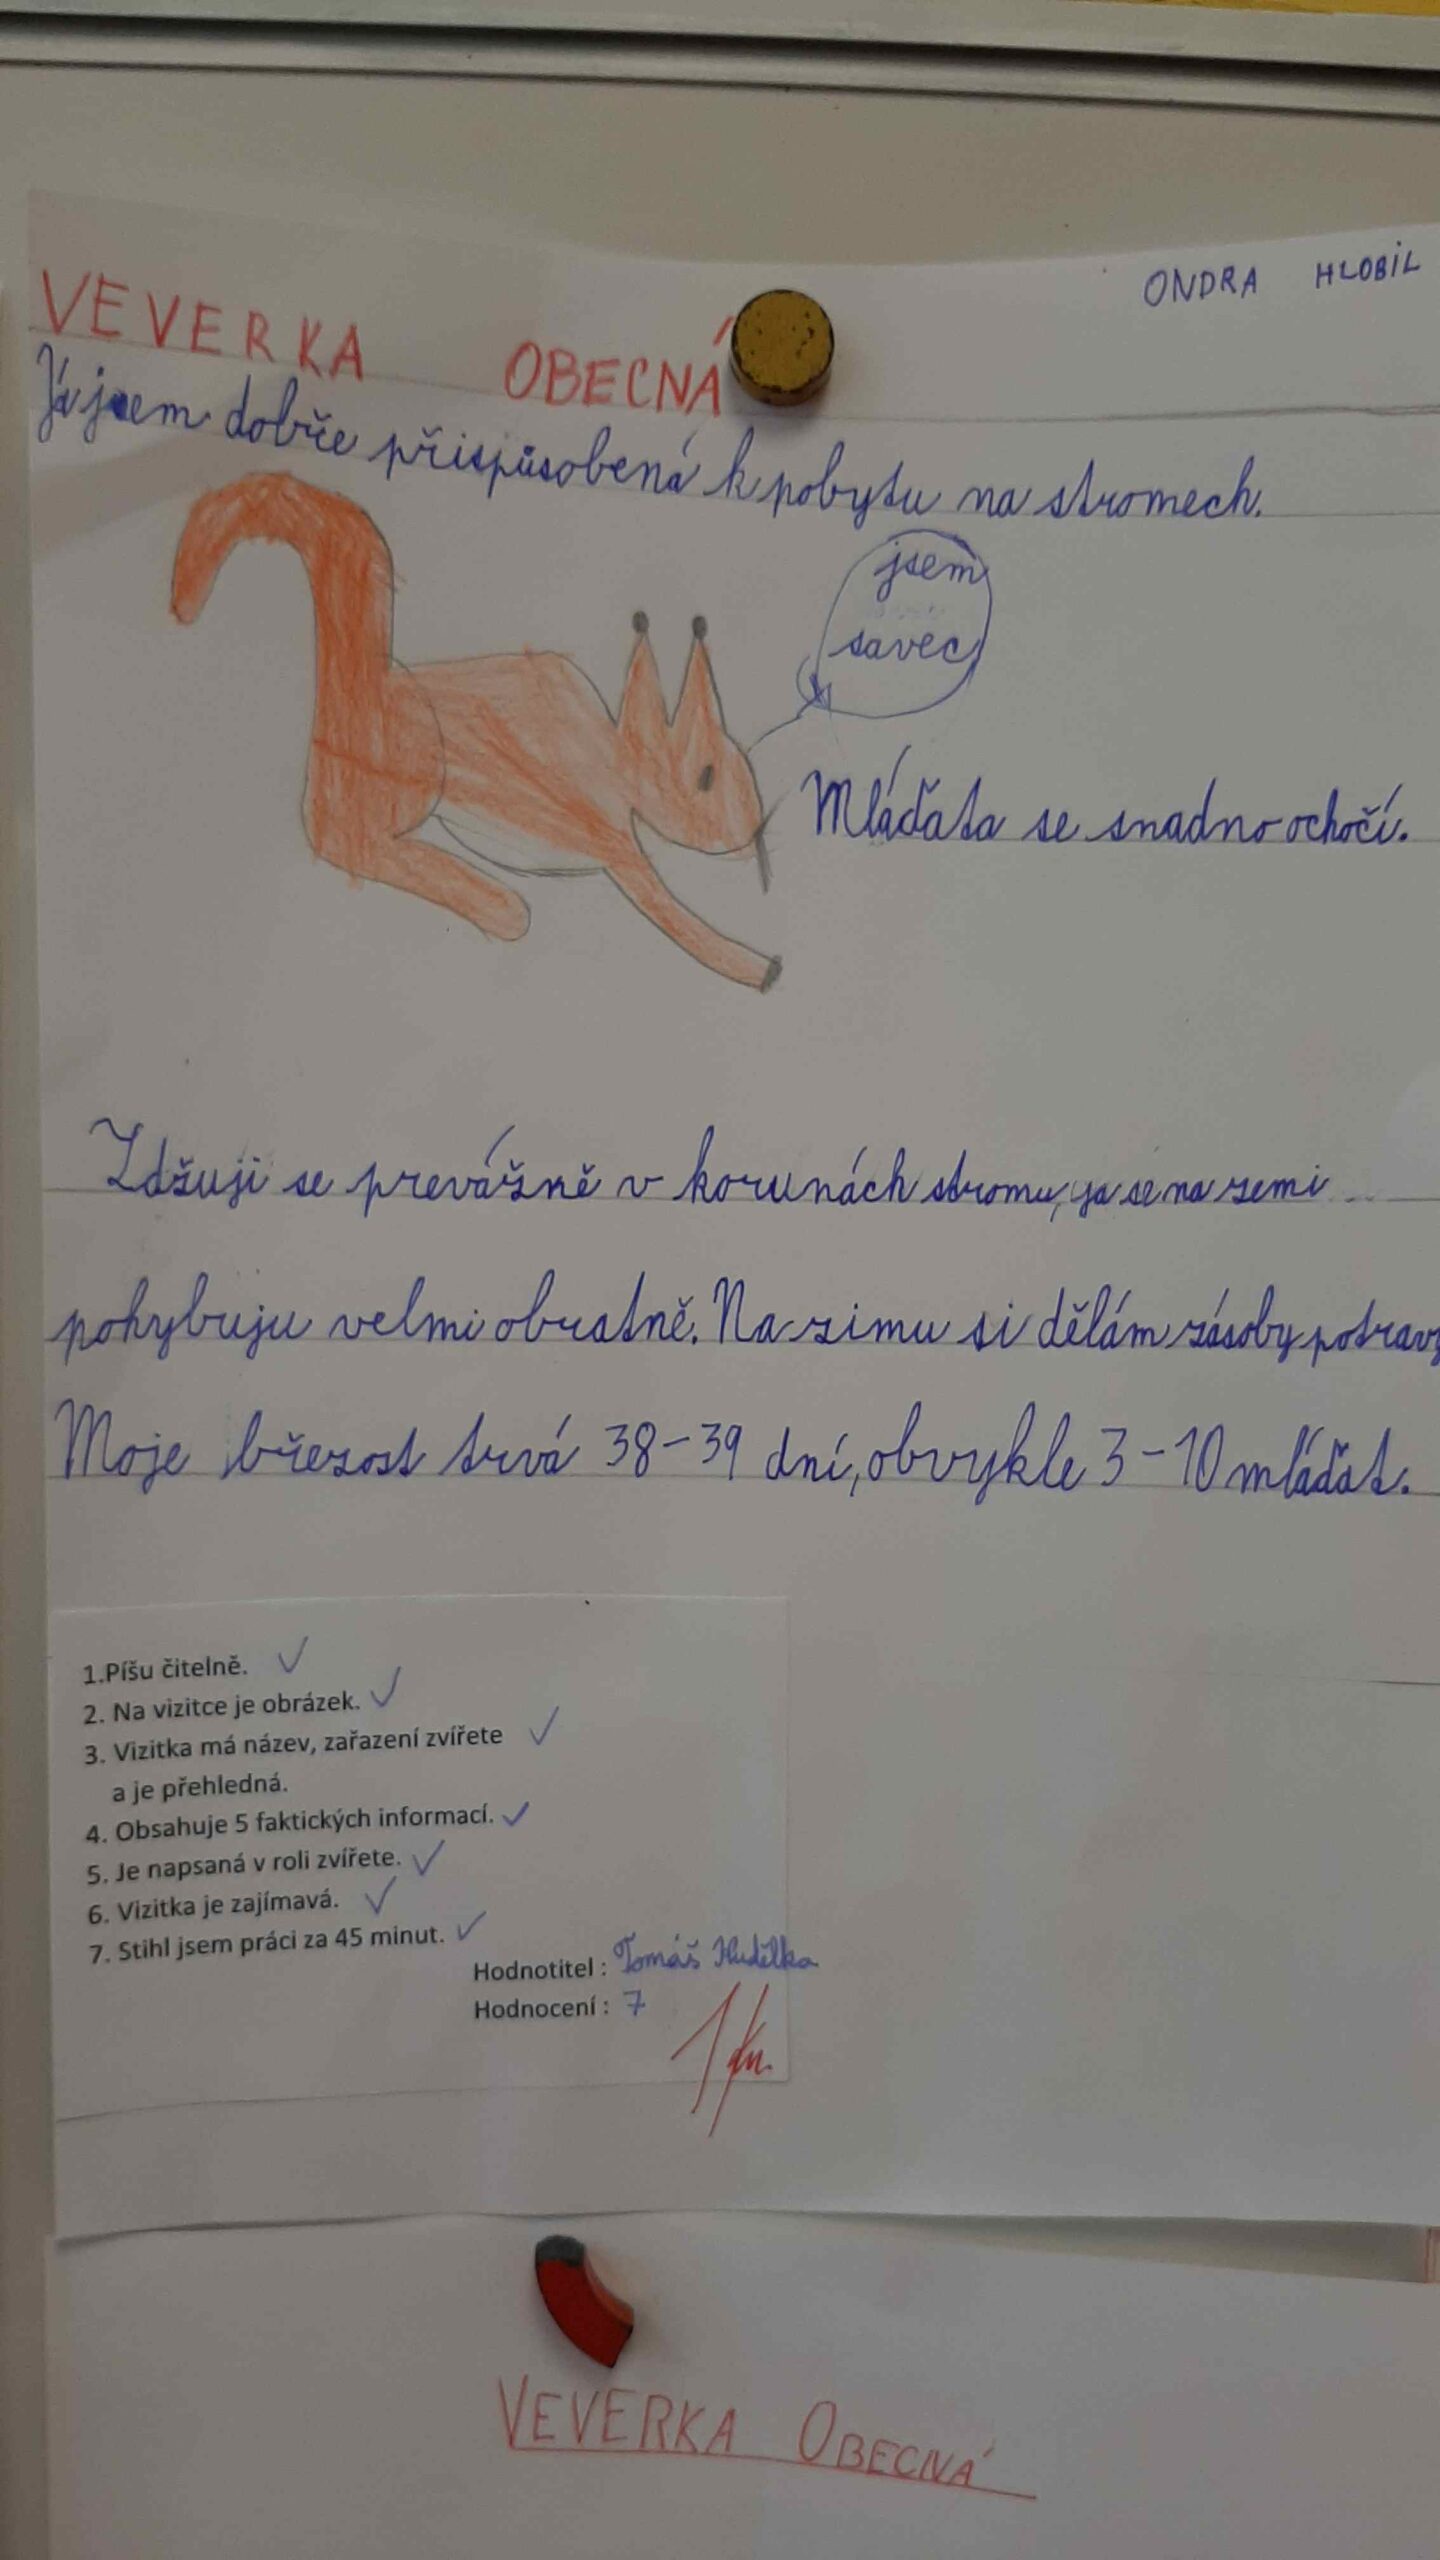 ONDRA HLOBIL
VEVERKA OBECNÁ
Já jsem dobře přispůsobená k pobytu na stromech.
jsem
savec
Mláďata se snadno ochočí.
Zdžuji se prevážně v korunách stromu, ja se na zemi
pohybuju velmi obratně. Na zimu si dělám zásoby potravy
Moje březost trvá 38-39 dní, obvykle 3-10 mláďat.
1.Píšu čitelně. ✓
2. Na vizitce je obrázek. ✓
3. Vizitka má název, zařazení zvířete ✓
a je přehledná.
4. Obsahuje 5 faktických informací. ✓
5. Je napsaná v roli zvířete. ✓
6. Vizitka je zajímavá. ✓
7. Stihl jsem práci za 45 minut. ✓
Hodnotitel : Tomáš Hudělka
Hodnocení : 7
1
VEVERKA OBECNÁ